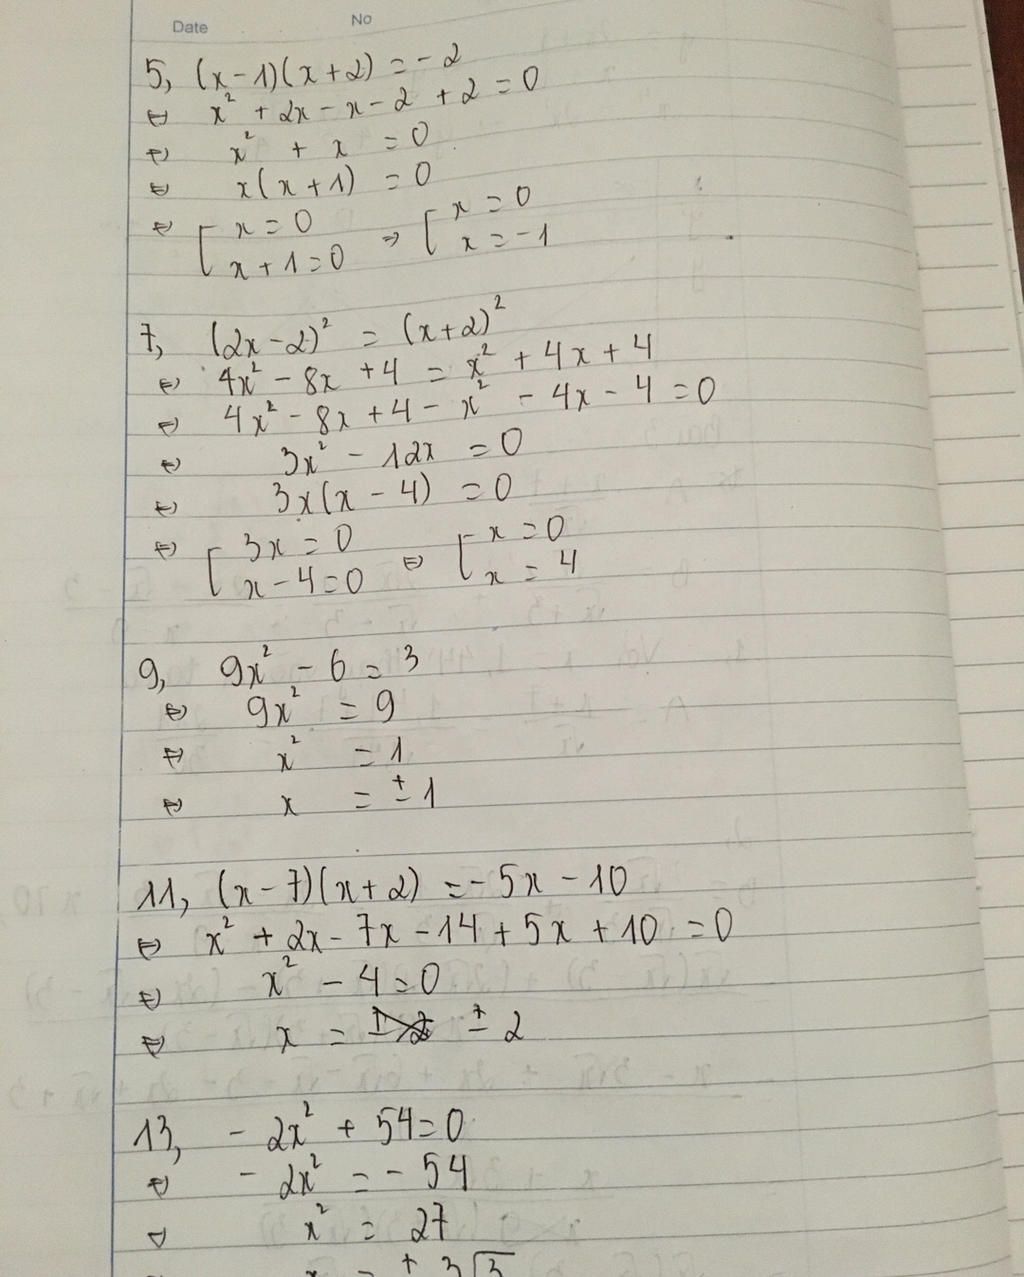 Date
No
5, (x-1)(x+2) = -2
⇔ x² + 2x - x - 2 + 2 = 0
⇔ x² + x = 0
⇔ x(x+1) = 0
⇔ [ x = 0 ⇒ [ x = 0
x + 1 = 0 x = -1
7, (2x-2)² = (x+2)²
⇔ 4x² - 8x + 4 = x² + 4x + 4
⇔ 4x² - 8x + 4 - x² - 4x - 4 = 0
⇔ 3x² - 12x = 0
⇔ 3x(x - 4) = 0
⇔ [ 3x = 0 ⇔ [ x = 0
x - 4 = 0 x = 4
9, 9x² - 6 = 3
⇔ 9x² = 9
⇔ x² = 1
⇔ x = ±1
11, (x-7)(x+2) = -5x - 10
⇔ x² + 2x - 7x - 14 + 5x + 10 = 0
⇔ x² - 4 = 0
⇔ x = ± 2
13, - 2x² + 54 = 0
⇔ - 2x² = - 54
⇔ x² = 27
x = ± 3√3